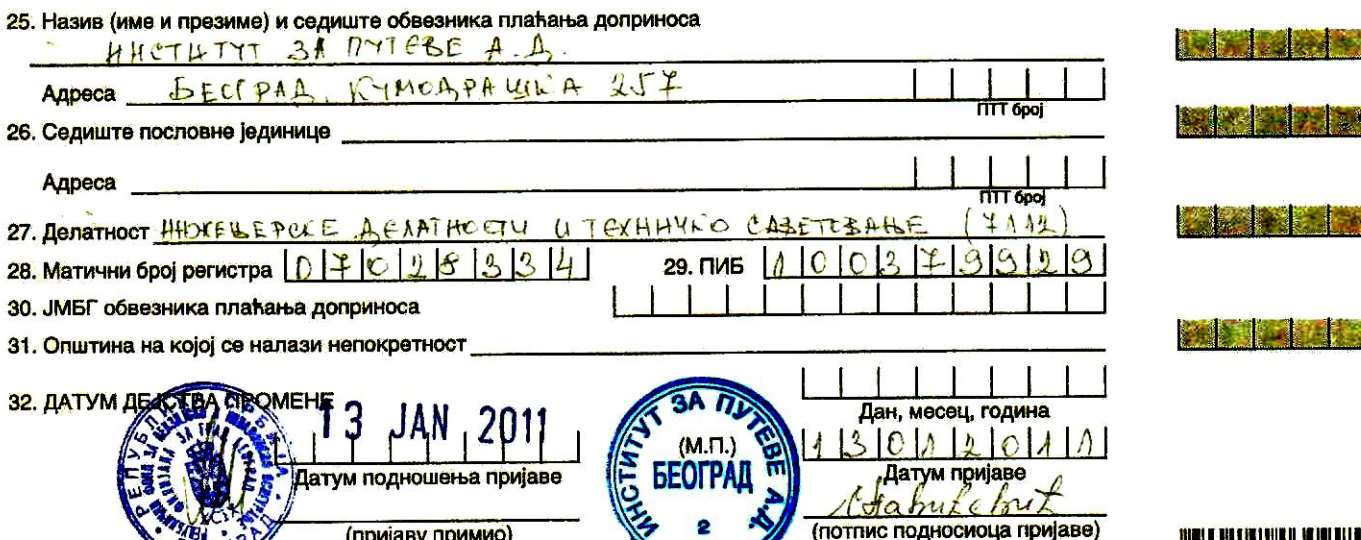 25. Назив (име и презиме) и седиште обвезника плаћања доприноса
ИНСТИТУТ ЗА ПУТЕВЕ А.Д.
Адреса БЕОГРАД, КУМОДРАШКА 257
ПТТ број
26. Седиште пословне јединице
Адреса
ПТТ број
27. Делатност ИНЖЕЊЕРСКЕ ДЕЛАТНОСТИ И ТЕХНИЧКО САВЕТОВАЊЕ (7112)
28. Матични број регистра 07028334 29. ПИБ 100379929
30. ЈМБГ обвезника плаћања доприноса
31. Општина на којој се налази непокретност
32. ДАТУМ ДЕЈСТВА ПРОМЕНЕ
Дан, месец, година
13 JAN 2011
13012011
Датум подношења пријаве
Датум пријаве
(пријаву примио)
(М.П.)
ИНСТИТУТ ЗА ПУТЕВЕ А.Д.
БЕОГРАД
2
(потпис подносиоца пријаве)